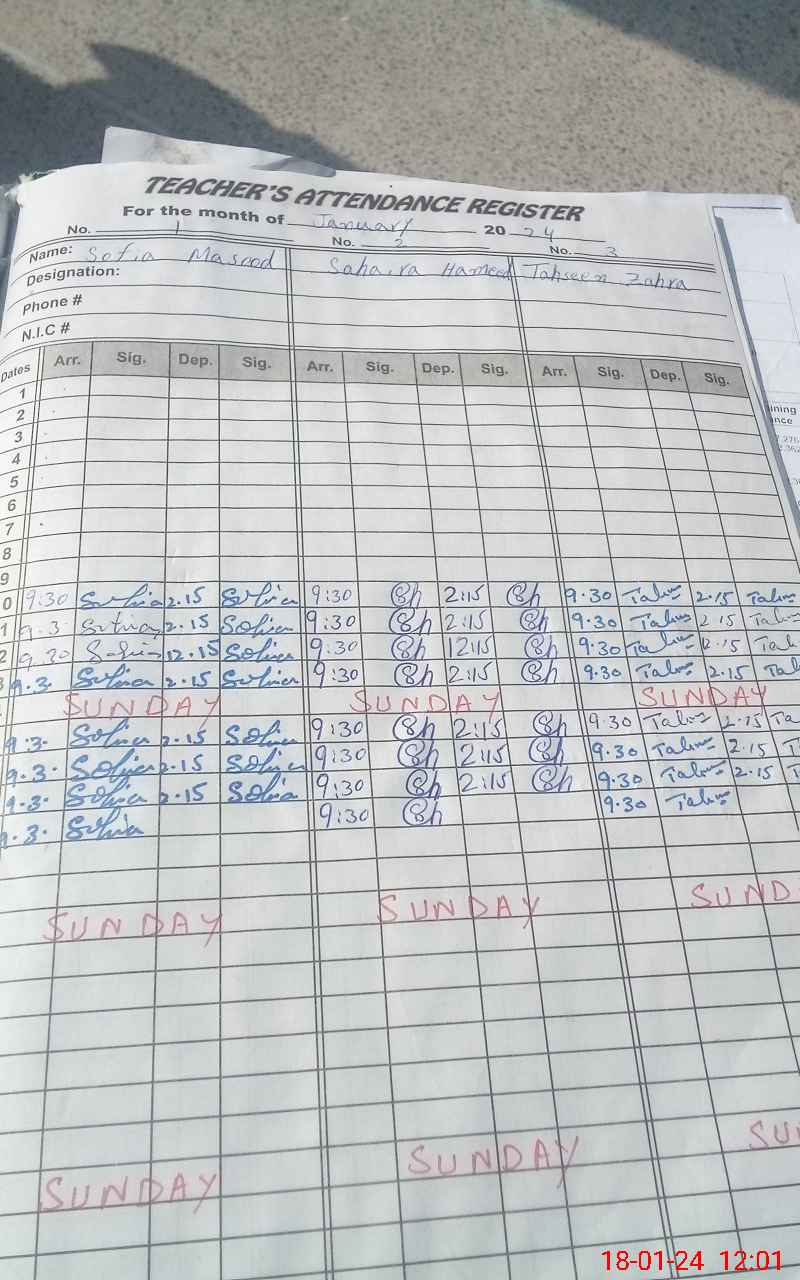 TEACHER'S ATTENDANCE REGISTER
For the month of January 2024
No. 1 No. 2 No. 3
Name: Sofia Masood Sahaira Hameed Tahseen Zahra
Designation:
Phone #
N.I.C #
Dates Arr. Sig. Dep. Sig. Arr. Sig. Dep. Sig. Arr. Sig. Dep. Sig.
1
2
3
4
5
6
7
8
9
0 9:30 Sofia 2.15 Sofia 9:30 Sh 2:15 Sh 9.30 2.15
1 9.3 Sofia 2.15 Sofia 9:30 Sh 2:15 Sh 9.30 2.15
2 9.30 Sofia 12.15 Sofia 9:30 Sh 12:15 Sh 9.30 12.15
3 9.3. Sofia 2.15 Sofia 9:30 Sh 2:15 Sh 9.30 2.15
SUNDAY SUNDAY SUNDAY
9.3. Sofia 2.15 Sofia 9:30 Sh 2:15 Sh 9.30 2.15
9.3. Sofia 2.15 Sofia 9:30 Sh 2:15 Sh 9.30 2.15
9.3. Sofia 2.15 Sofia 9:30 Sh 2:15 Sh 9.30 2.15
9.3. Sofia 9:30 Sh 9.30
SUNDAY SUNDAY SUND
SUNDAY SUNDAY SU
18-01-24 12:01